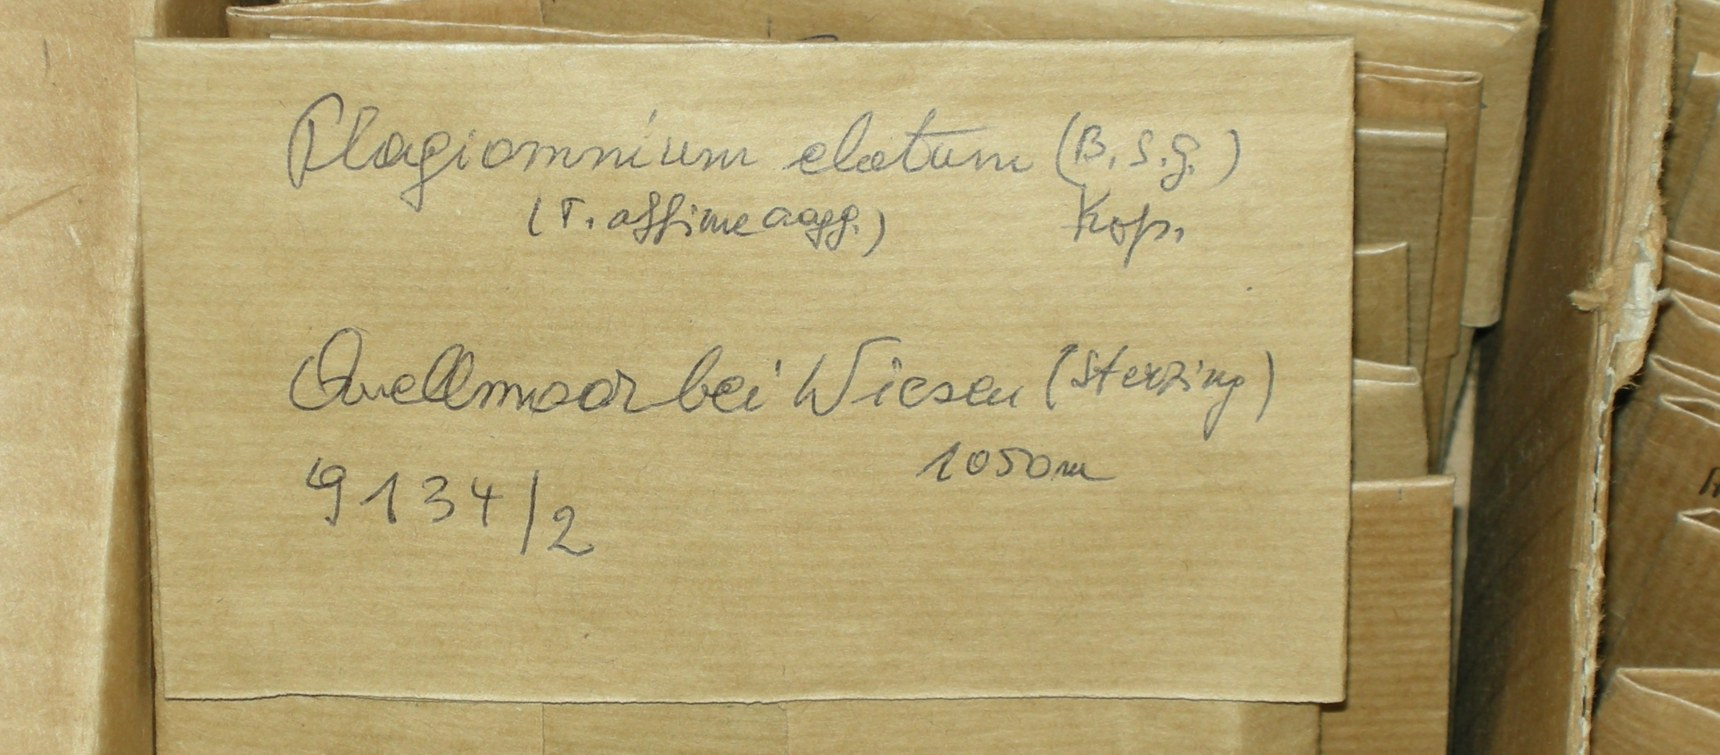 Plagiomnium elatum (B.S.G.)
(P. affine aagg.) Kop.
Quellmoor bei Wiesen (Sterzing)
1050m
9134/2